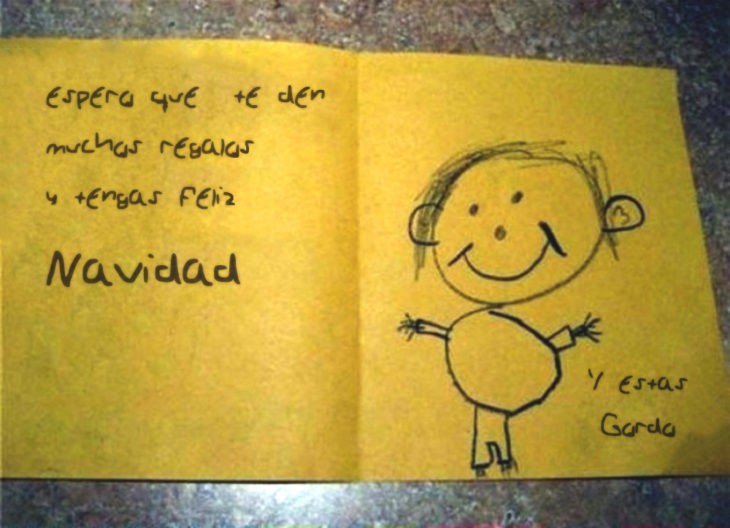 espero que te den
muchos regalos
y tengas feliz
Navidad
Y estas
Gordo